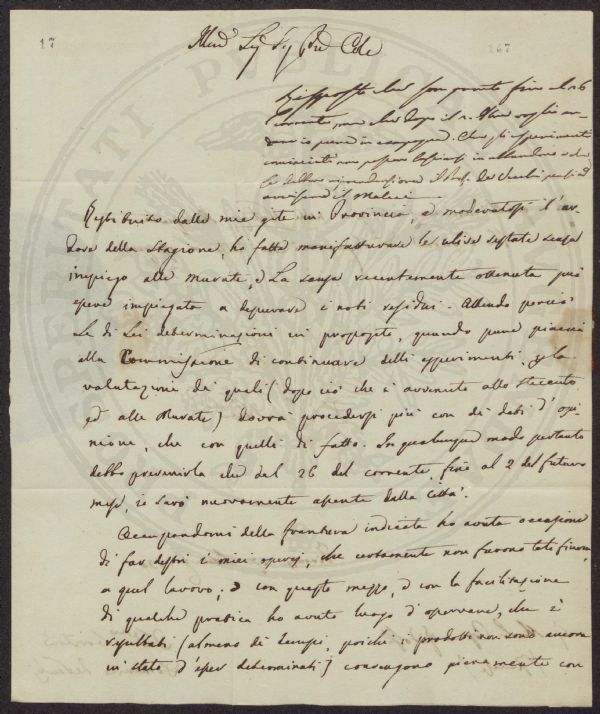 17
167
Illmo Sig. Sig. Pre Cole
Risposto che son pronto fino al 26
corrente, ma che dopo il
in campagna. Che gli esperimenti
cominciati non possono lasciarsi in abbandono
Restituito dalle mie gite in Provincia, e moderatosi l'ar-
dore della Stagione, ho fatto manifatturare le ulive restate senza
impiego alle Murate, e La sansa recentemente ottenuta può
essere impiegata a depurare i noti residui. Attendo perciò
Le di Lei determinazioni in proposito, quando pure piaccia
alla Commissione di continuare delli esperimenti, la
valutazione de' quali (dopo ciò che è avvenuto allo Steccuto
ed alle Murate) dovrà procedersi più con de' dati d'opi-
nione, che con quelli di fatto. In qualunque modo pertanto
debbo prevenirla che dal 26 del corrente fino al 2 del futuro
mese, io sarò nuovamente assente dalla Città.
Occupandomi della faccenda indicata ho avuta occasione
di far destri i miei operaj, che certamente non furono tali finora
a quel lavoro; e con questo mezzo, e con la facilitazione
di qualche pratica ho avuto luogo d'osservare, che i
resultati (almeno di tempi, poichè i prodotti non sono ancora
in stato d'esser determinati) convengono pienamente con